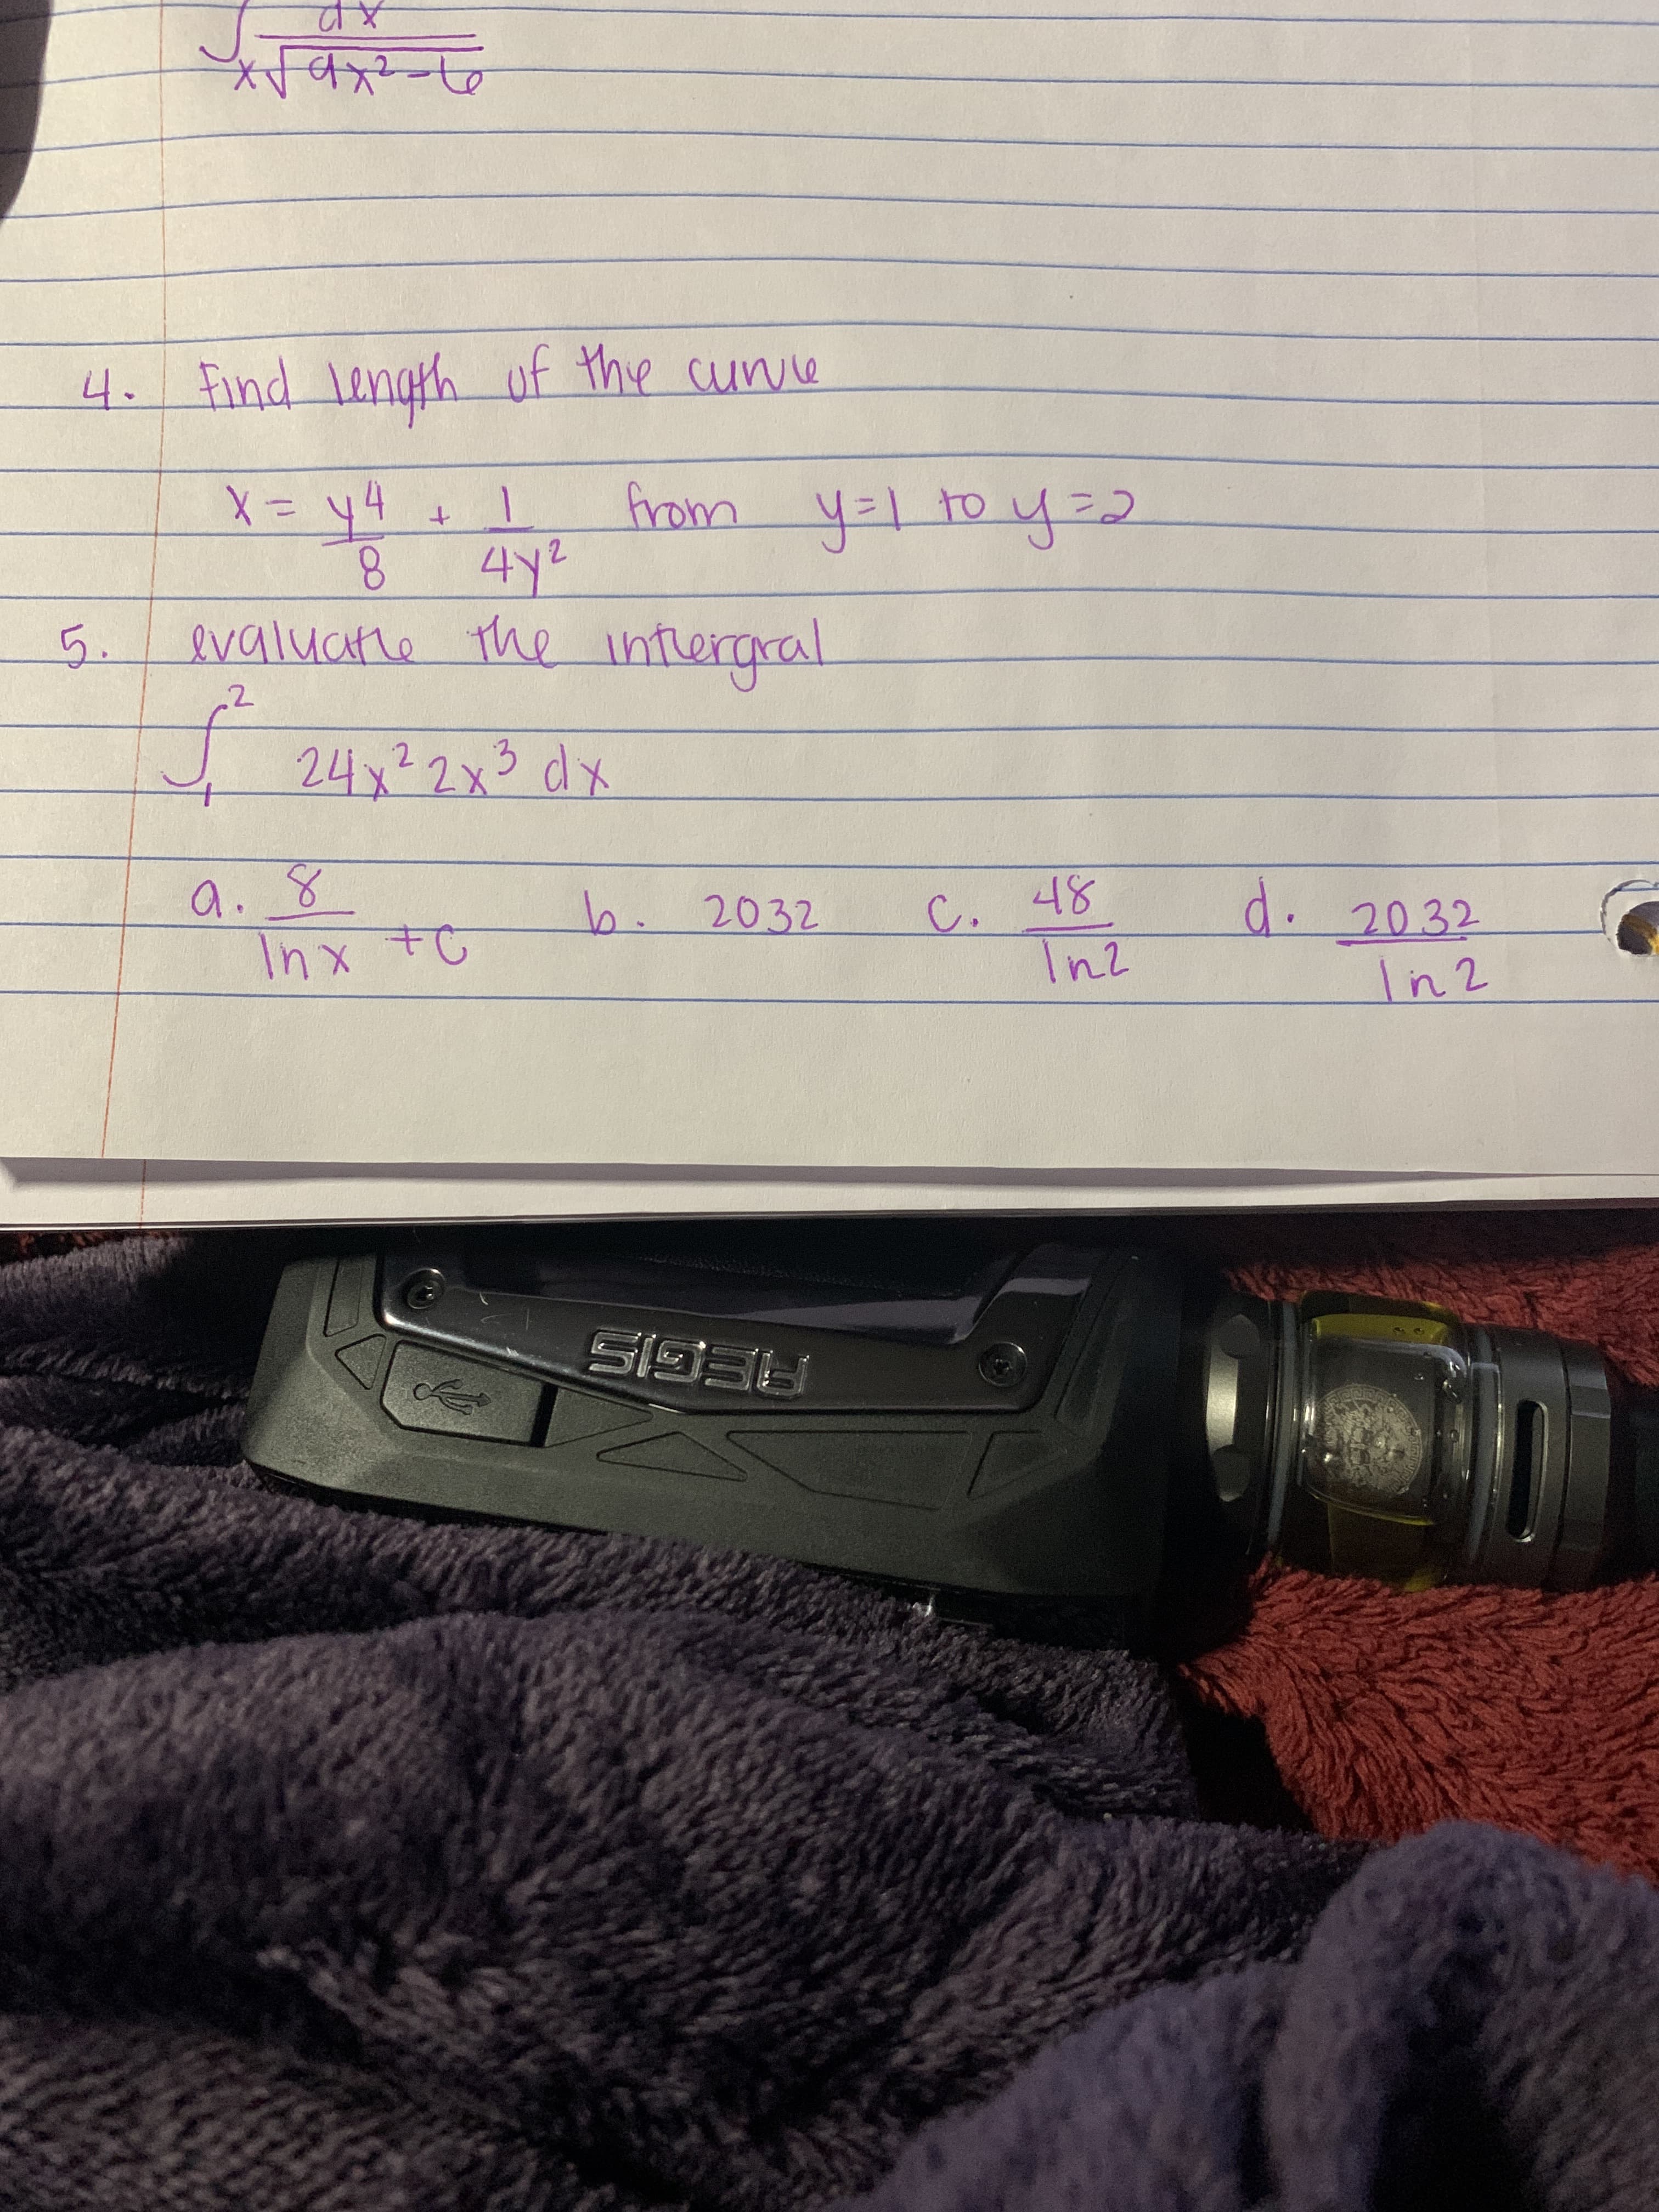 ∫ dx
x√9x² - 6
4. Find length of the curve
x = y4/8 + 1/4y² from y=1 to y=2
5. evaluate the intergral
∫₁² 24x² 2x³ dx
a. 8/ln x + c b. 2032 c. 48/ln2 d. 2032/ln2
AEGIS